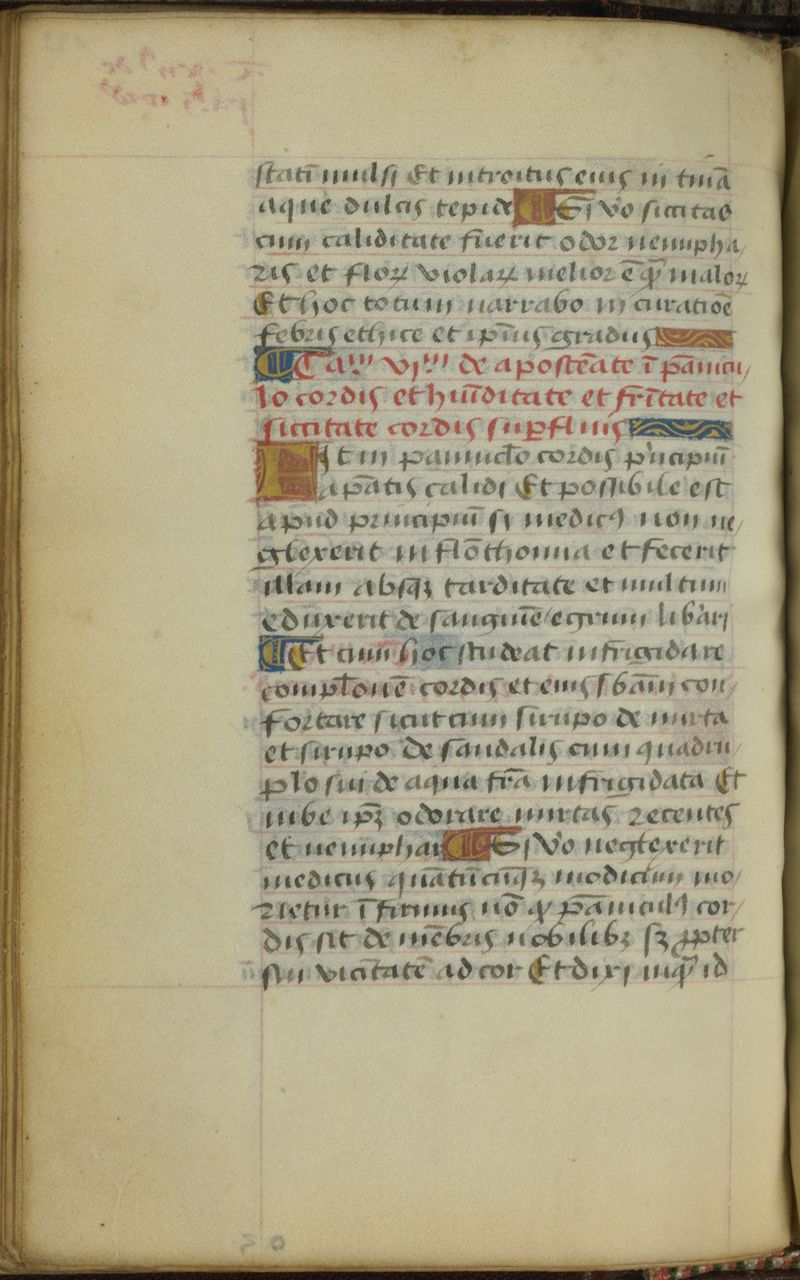 statī mulsi Et introitus eius in tinā
aque dulcis tepide ¶ Si vo siccitas
cum caliditate fuerit odor nenupha
ris et floꝝ violaꝝ melior ē qͣ maloꝝ
Et hoc totum narrabo in curatiōe
febris ethice et ipīus egradus
¶ Caᵐ vjᵐ de apostēate ī pānicu
lo cordis et hūiditate et frītate et
siccitate cordis suꝑfluis
Fit in pāniclo cordis pͥncipiū
apātis calidi Et possibile est
apud principiū si medicꝰ non ne
glexerit in flōthomia et fecerit
illam absqꝫ tarditate et multum
eduxerit de sanguinē egrum libari
¶ Et cum hoc studeat infrigidare
complōnē cordis et eius sbām con
fortare sicut cum sirupo de mirta
et sirupo de sandalis cum quadru
plo sui de aqua frā infrigidata Et
iube ipꝫ odorare mirtas recentes
et nenuphar ¶ Si vo neglexerit
medicus quātūcūqꝫ modicum mo
rietur īfirmus nō qꝫ pāniculꝰ cor
dis sit de mēbris nobilibꝫ sꝫ ꝓpter
sui vicītatē ad cor Et dixi inqͣ id